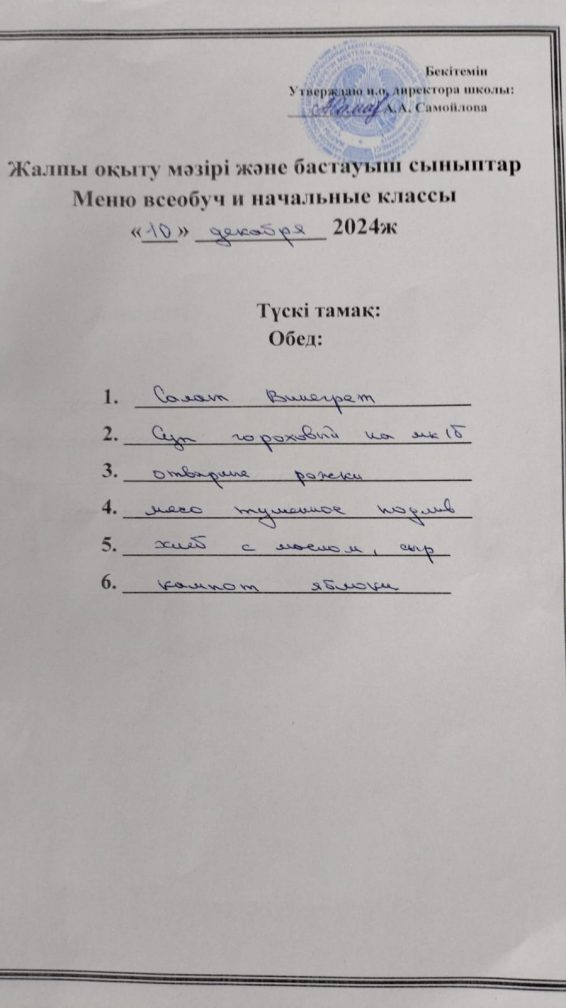 Бекітемін
Утверждаю и.о. директора школы:
А.А. Самойлова
Жалпы оқыту мәзірі және бастауыш сыныптар
Меню всеобуч и начальные классы
«10» декабря 2024ж
Түскі тамақ:
Обед:
1. Салат Винегрет
2. Суп гороховый на мк/б
3. отварные рожки
4. мясо тушенное подлив
5. хлеб с маслом, сыр
6. компот яблоки